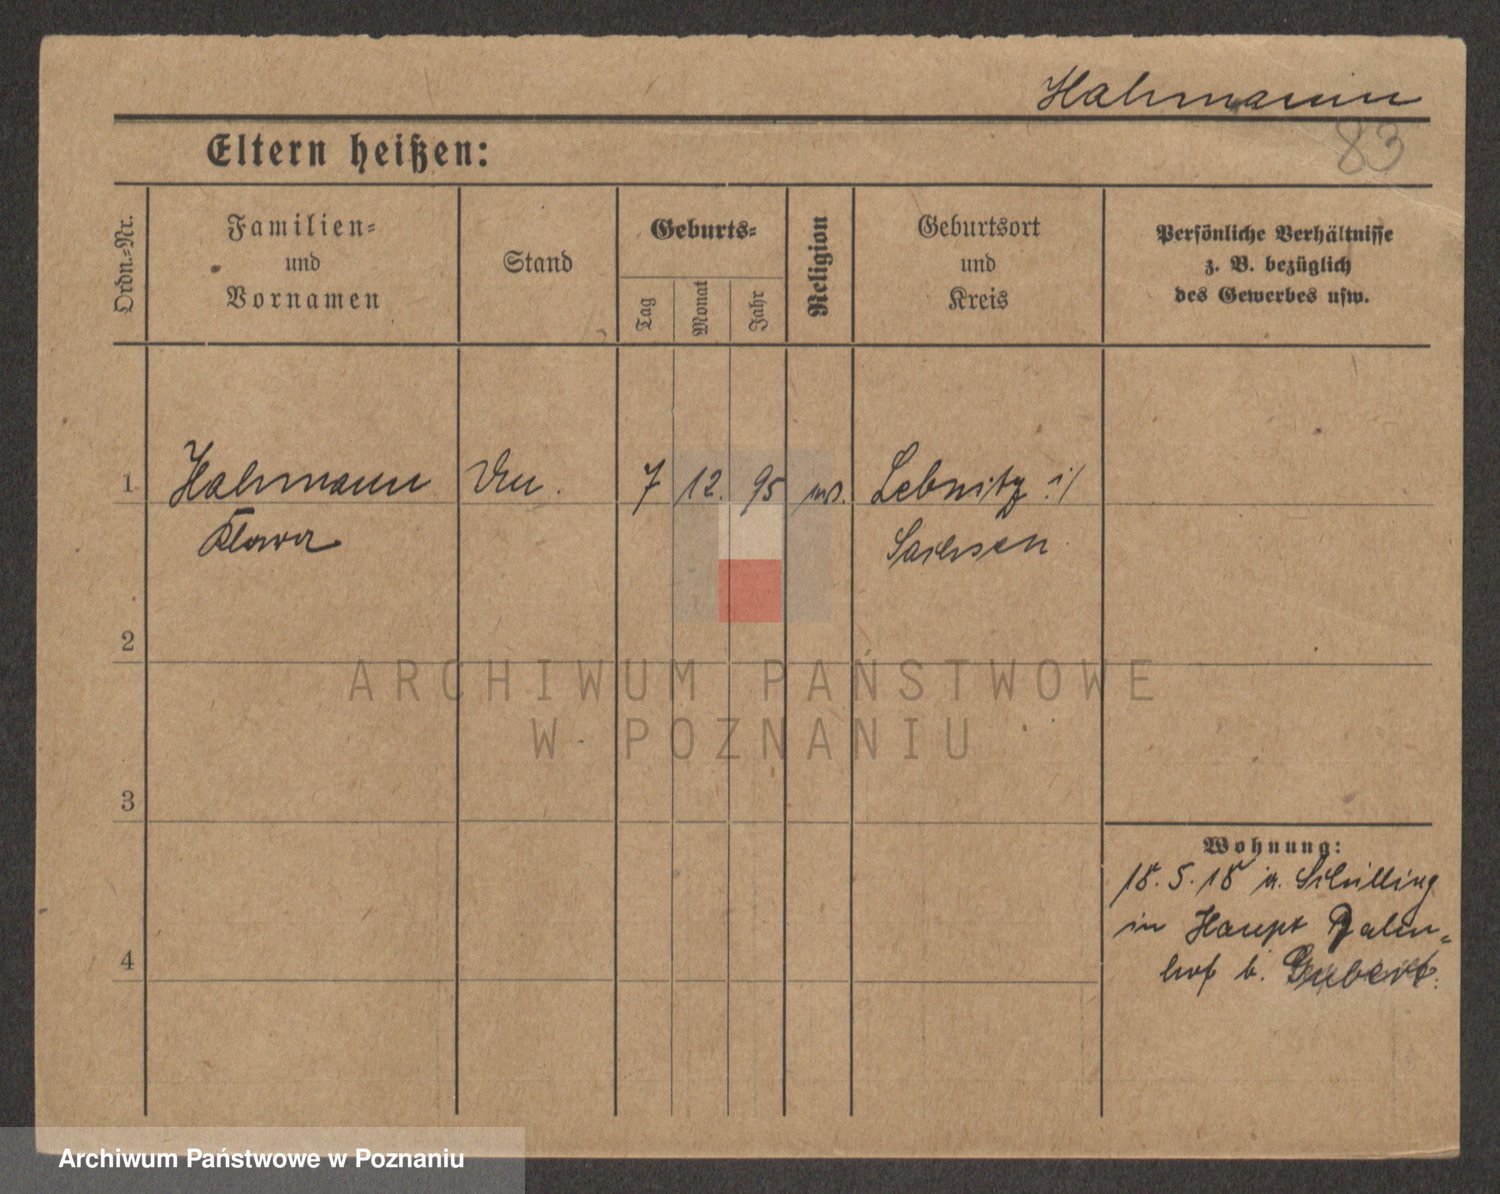 Hahmann
83
Eltern heißen:
Ordn.-Nr.
Familien-
und
Vornamen
Stand
Geburts-
Tag
Monat
Jahr
Religion
Geburtsort
und
Kreis
Persönliche Verhältnisse
z. B. bezüglich
des Gewerbes usw.
1
Hahmann
7
12.
95
Sebnitz i/
Sachsen
2
3
4
Wohnung:
18. 5. 18 a. Schilling
in Haupt Bahn-
hof b.
ARCHIWUM PAŃSTWOWE
W POZNANIU
Archiwum Państwowe w Poznaniu